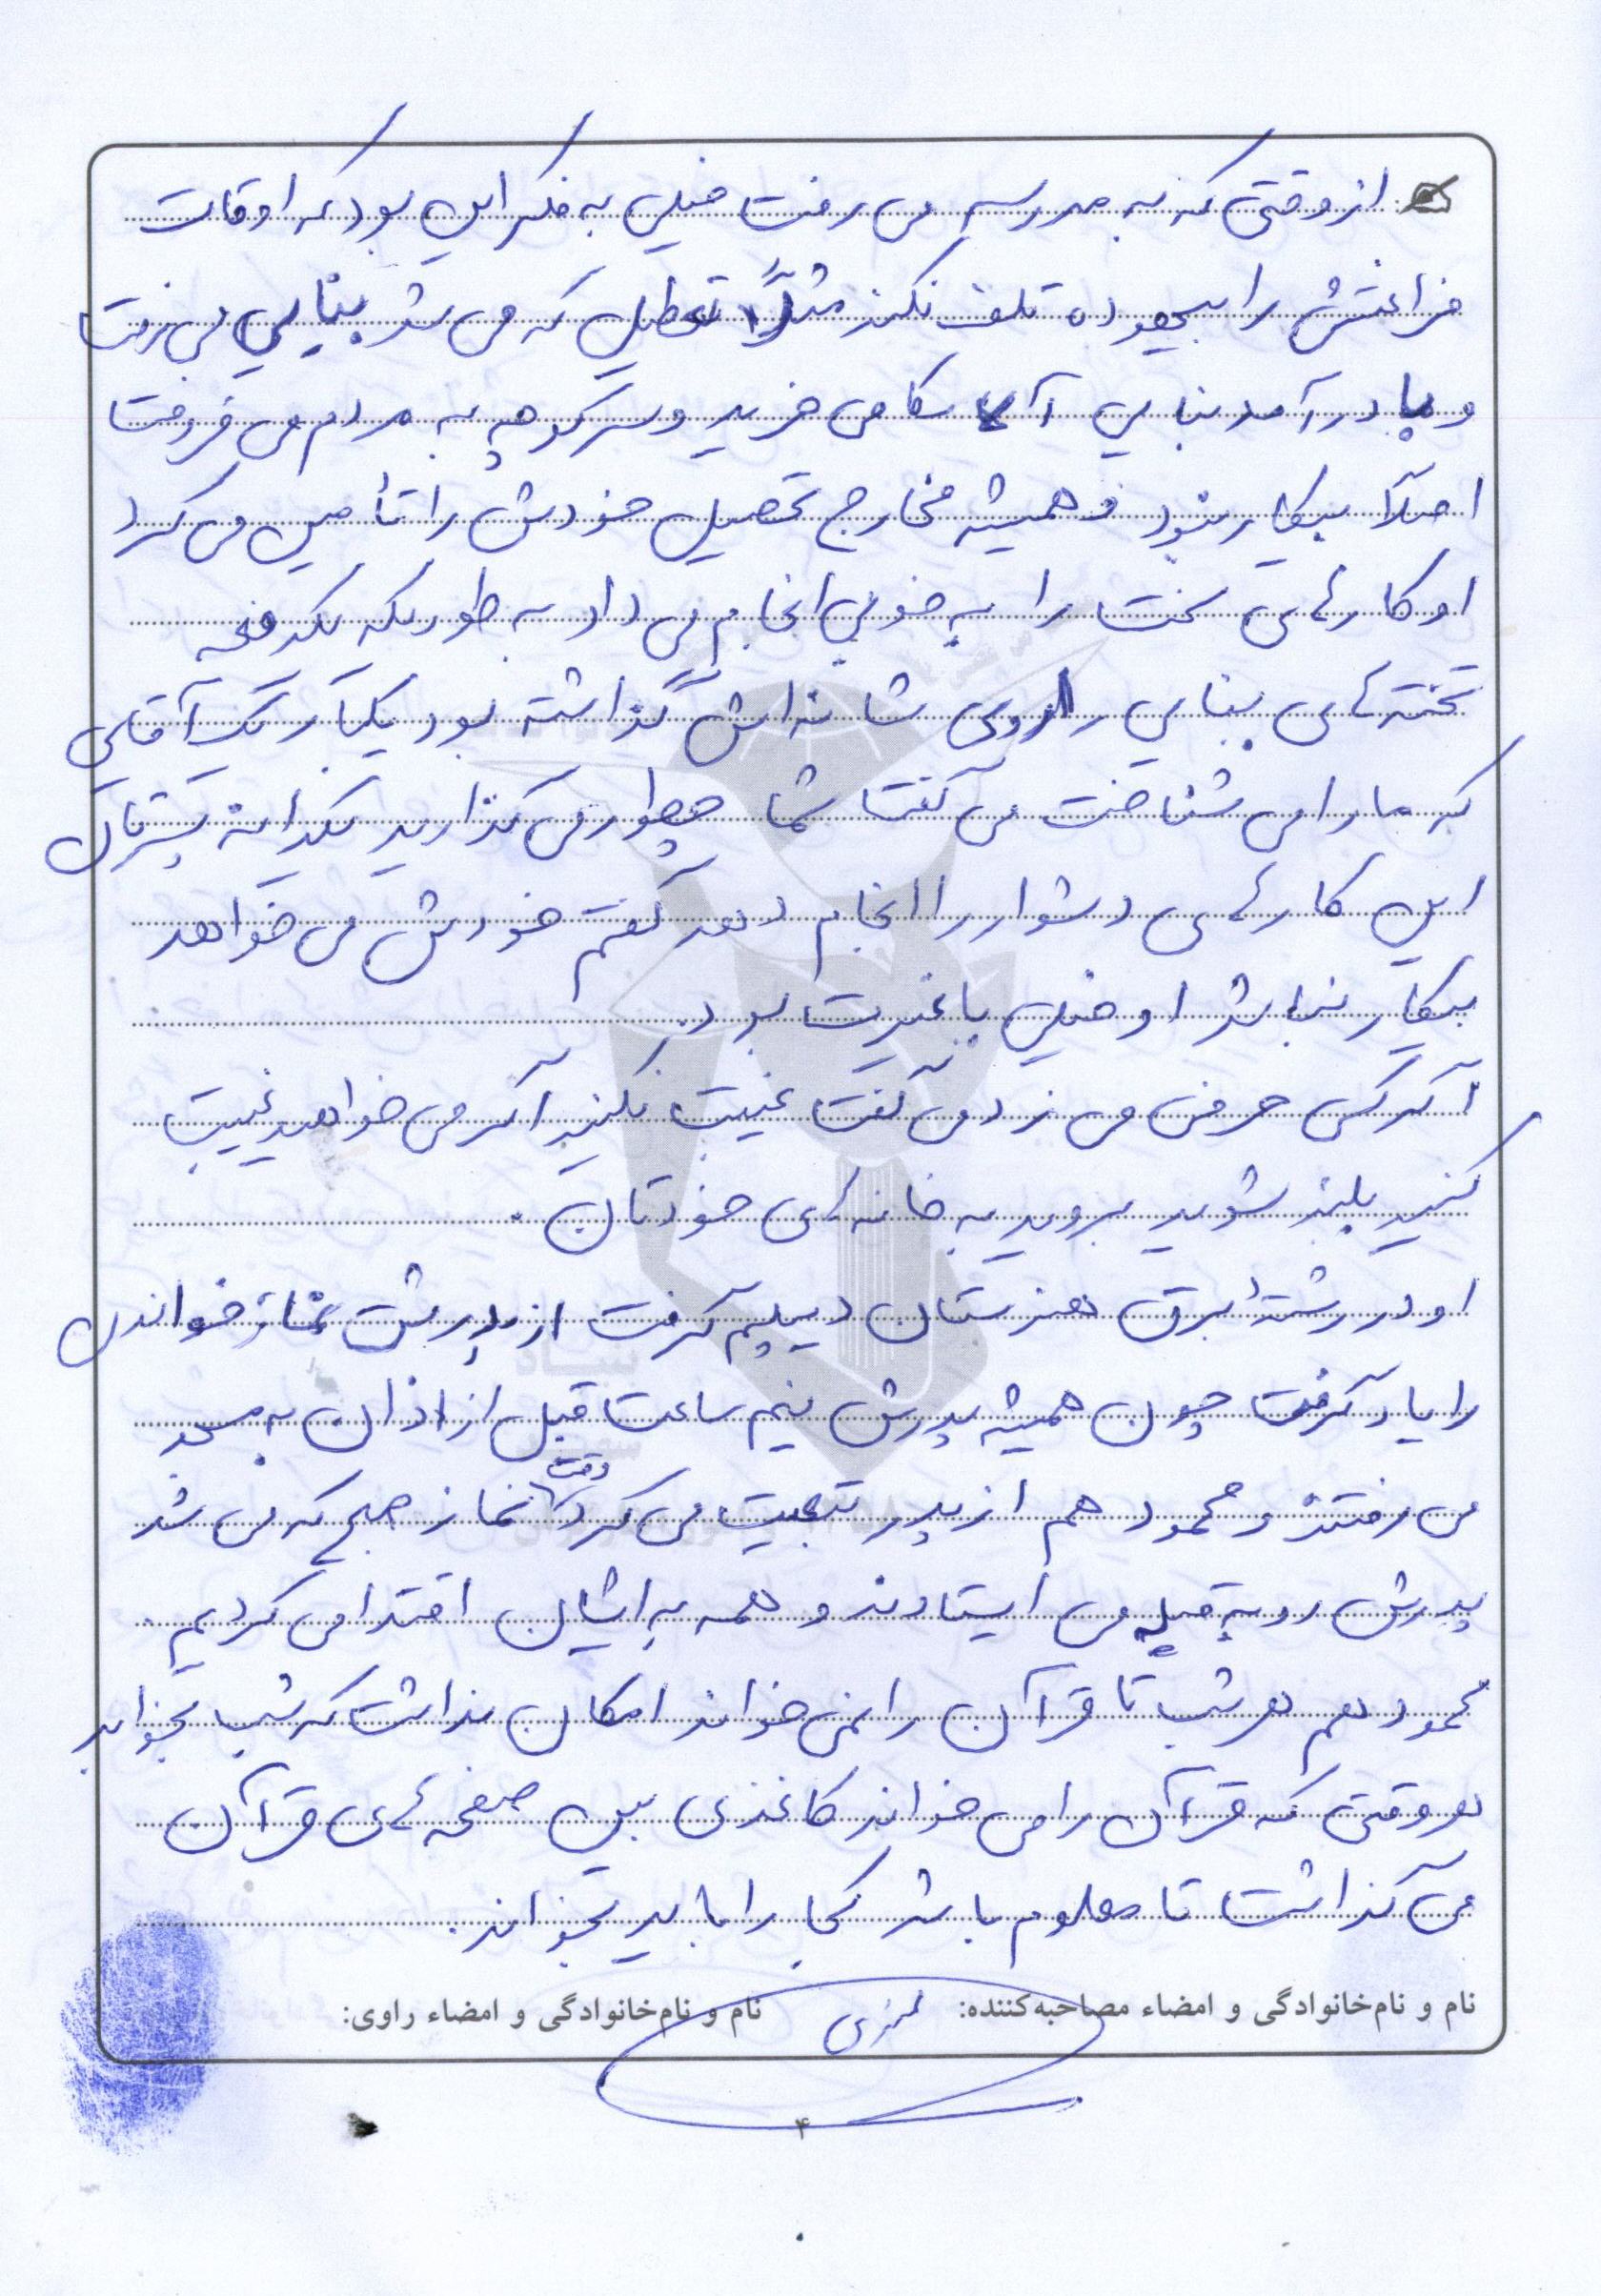 از وقتی که به مدرسه می رفت خیلی به فکر این بود که اوقات
فراغتش را بیهوده تلف نکند مثلاً تعطیلی که می شد بنایی می رفت
و با درآمد بنایی آلاسکا می خرید و سر کوچه به مردم می فروخت
اصلاً بیکار نبود و همیشه مخارج تحصیل خودش را تأمین می کرد
او کارهای سخت را به خوبی انجام می داد به طوریکه یکدفعه
تخته های بنایی را روی شانه اش گذاشته بود یکبار یک آقای
که ما را می شناخت می گفت شما چطور می گذارید یکدانه پسرتان
این کارهای دشوار را انجام دهد گفتم خودش می خواهد
بیکار نباشد او خیلی با غیرت بود.
اگر کسی حرفی می زد می گفت غیبت نکنید اگر می خواهید غیبت
کنید بلند شوید بروید به خانه های خودتان.
او در رشتهٔ برق هنرستان دیپلم گرفت از پدرش نماز خواندن
را یاد گرفت چون همیشه پدرش نیم ساعت قبل از اذان به مسجد
می رفتند و محمود هم از پدر تبعیت می کرد وقت نماز صبح که می شد
پدرش رو به قبله می ایستادند و همه به ایشان اقتدا می کردیم.
محمود هم هر شب تا قرآن را نمی خواند امکان نداشت که شب بخوابد
هر وقتی که قرآن را می خواند کاغذی بین صفحه های قرآن
می گذاشت تا معلوم باشد کجا را باید بخواند.
نام و نام‌خانوادگی و امضاء مصاحبه‌کننده:
نام و نام‌خانوادگی و امضاء راوی:
۴